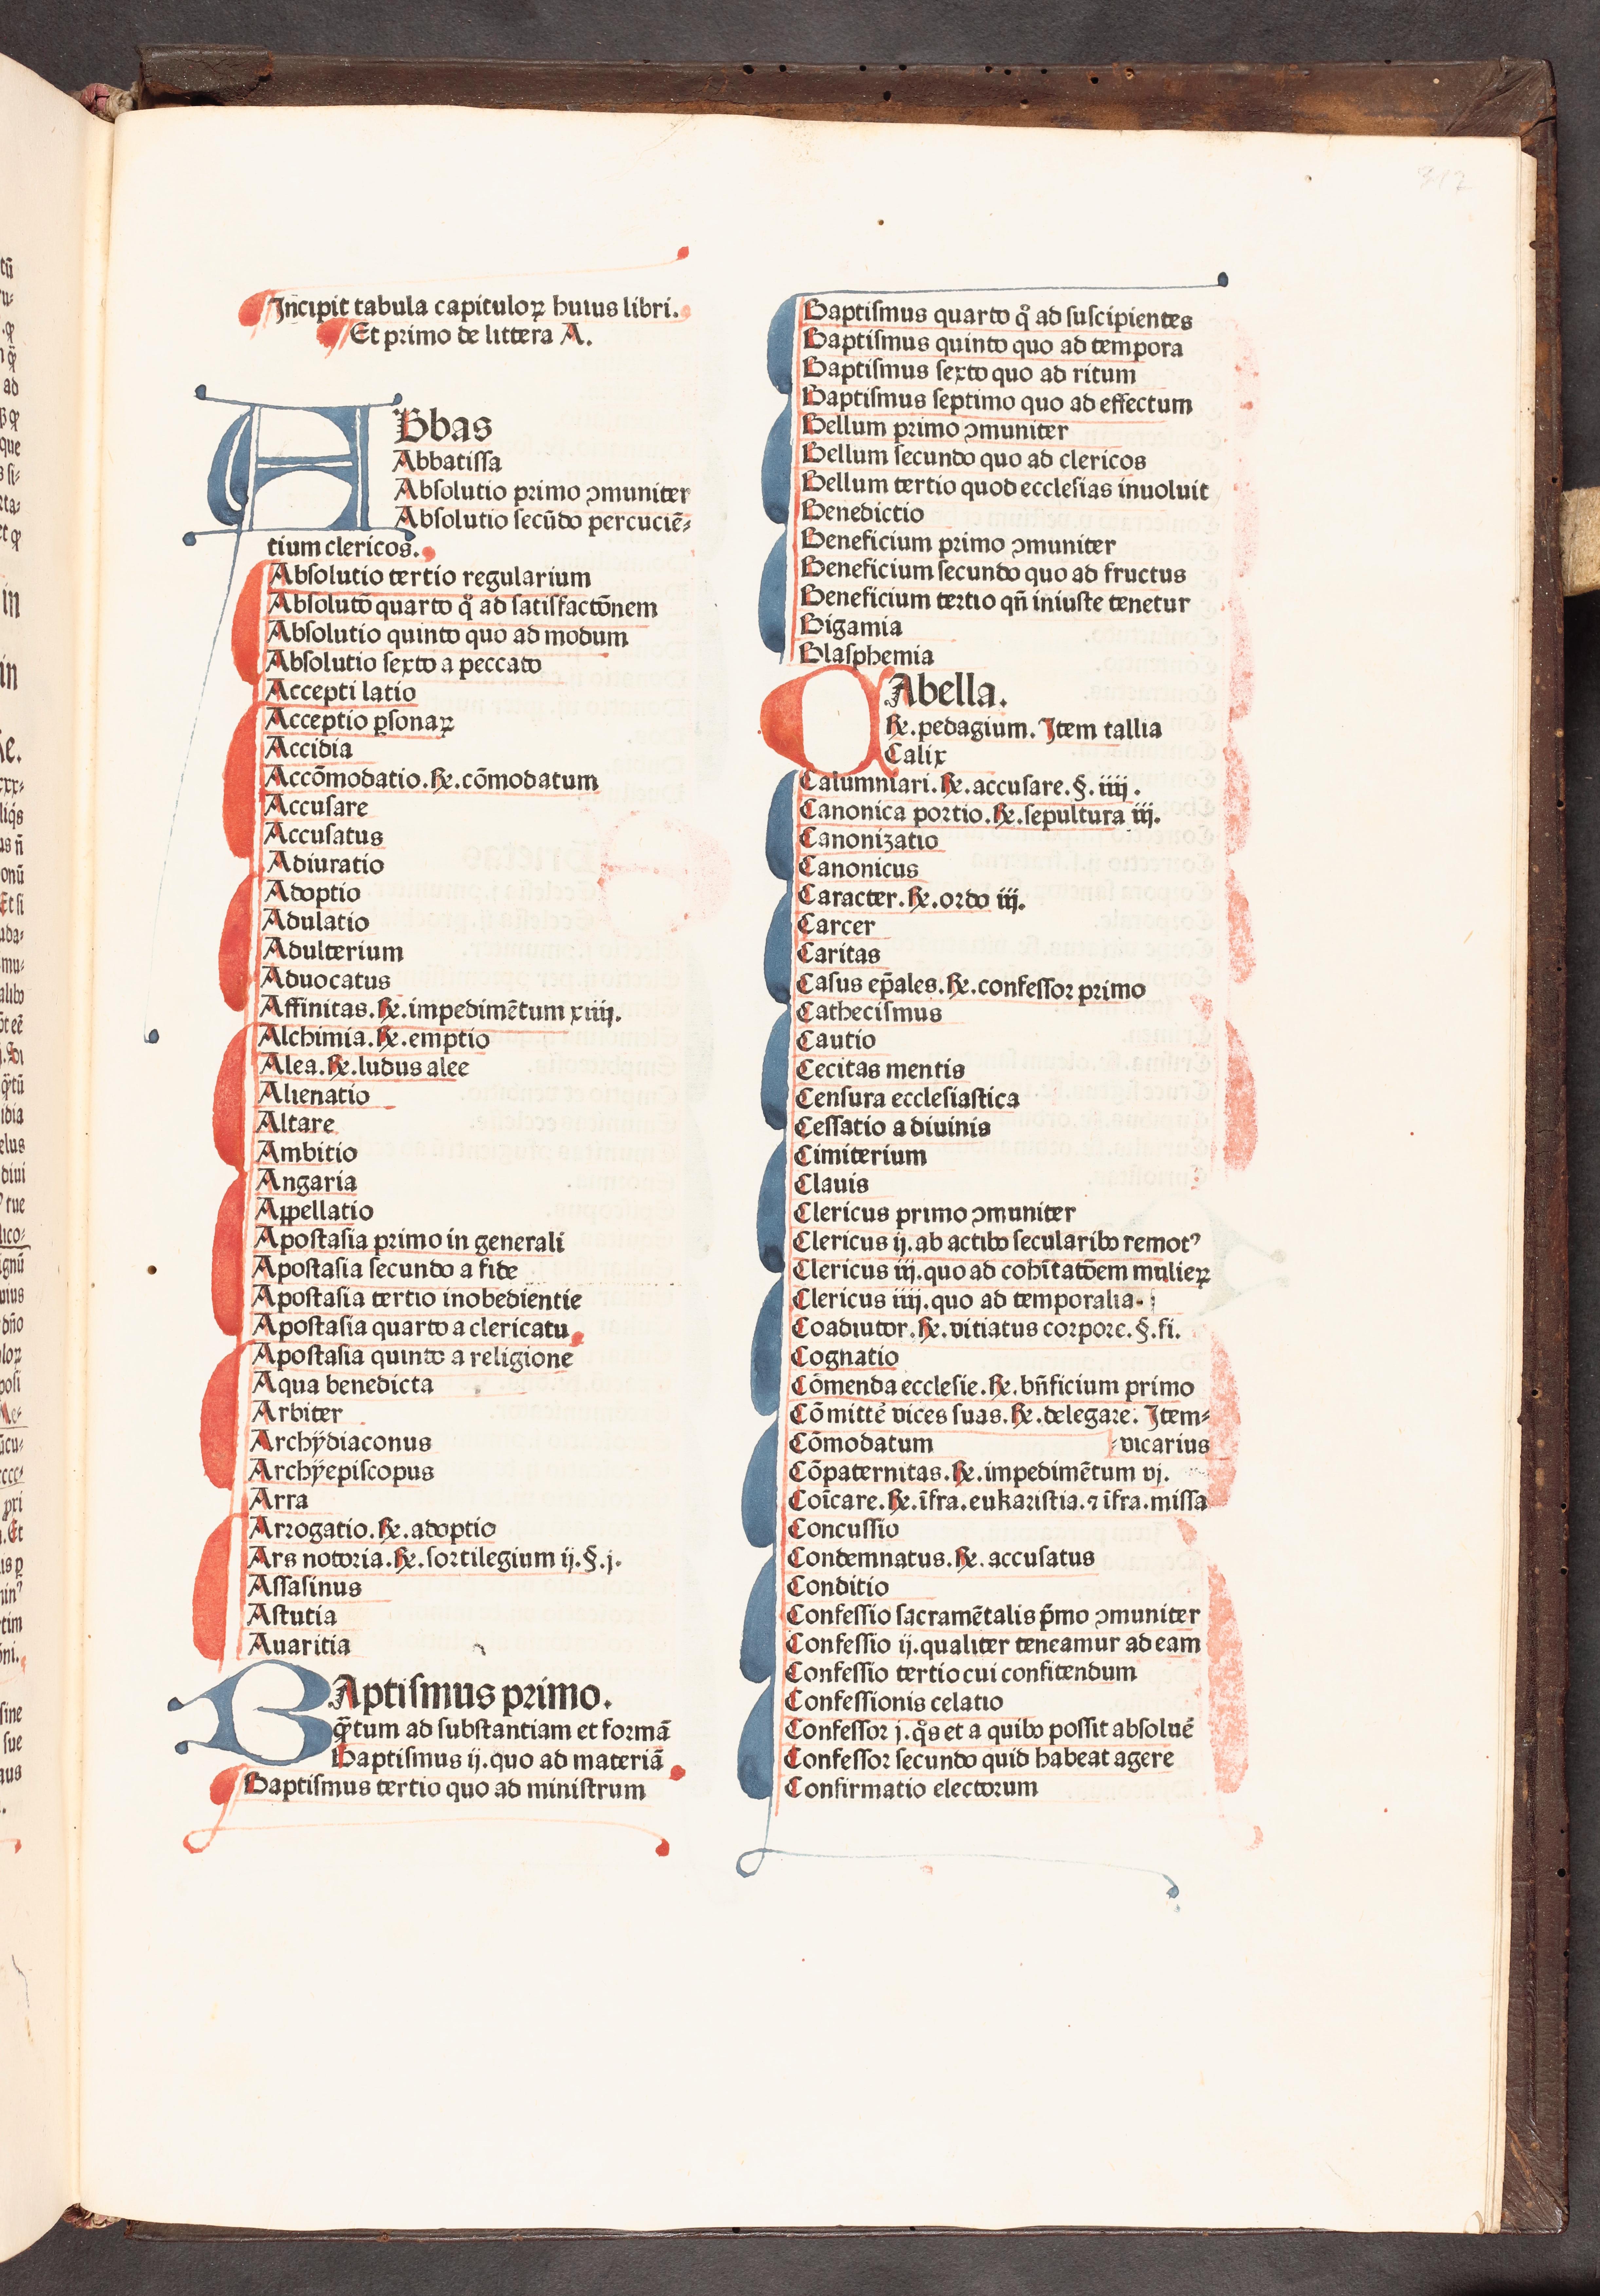 312
Incipit tabula capituloꝝ huius libri.
Et primo de littera A.
ABbas
Abbatissa
Absolutio primo ꝯmuniter
Absolutio secūdo percuciē⸗
tium clericos.
Absolutio tertio regularium
Absolutō quarto qͦ ad satisfactōnem
Absolutio quinto quo ad modum
Absolutio sexto a peccato
Accepti latio
Acceptio ꝑsonaꝝ
Accidia
Accōmodatio. ℞. cōmodatum
Accusare
Accusatus
Adiuratio
Adoptio
Adulatio
Adulterium
Aduocatus
Affinitas. ℞. impedimētum xiiij.
Alchimia. ℞. emptio
Alea. ℞. ludus alee
Alienatio
Altare
Ambitio
Angaria
Appellatio
Apostasia primo in generali
Apostasia secundo a fide
Apostasia tertio inobedientie
Apostasia quarto a clericatu
Apostasia quinto a religione
Aqua benedicta
Arbiter
Archÿdiaconus
Archÿepiscopus
Arra
Arrogatio. ℞. adoptio
Ars notoria. ℞. sortilegium ij. §. j.
Assasinus
Astutia
Auaritia
BAptismus primo.
q̄tum ad substantiam et formā
Baptismus ij. quo ad materiā
Baptismus tertio quo ad ministrum
Baptismus quarto qͦ ad suscipientes
Baptismus quinto quo ad tempora
Baptismus sexto quo ad ritum
Baptismus septimo quo ad effectum
Bellum primo ꝯmuniter
Bellum secundo quo ad clericos
Bellum tertio quod ecclesias inuoluit
Benedictio
Beneficium primo ꝯmuniter
Beneficium secundo quo ad fructus
Beneficium tertio qn̄ iniuste tenetur
Bigamia
Blasphemia
CAbella.
℞. pedagium. Item tallia
Calix
Calumniari. ℞. accusare. §. iiij.
Canonica portio. ℞. sepultura iij.
Canonizatio
Canonicus
Caracter. ℞. ordo iij.
Carcer
Caritas
Casus ep̄ales. ℞. confessor primo
Cathecismus
Cautio
Cecitas mentis
Censura ecclesiastica
Cessatio a diuinis
Cimiterium
Clauis
Clericus primo ꝯmuniter
Clericus ij. ab actibꝰ secularibꝰ remotꝰ
Clericus iij. quo ad cohītatōem mulieꝝ
Clericus iiij. quo ad temporalia
Coadiutor. ℞. vitiatus corpore. §. fi.
Cognatio
Cōmenda ecclesie. ℞. bn̄ficium primo
Cōmittē vices suas. ℞. delegare. Item⸗
Cōmodatum ⸗vicarius
Cōpaternitas. ℞. impedimētum vj.
Coīcare. ℞. īfra. eukaristia. ⁊ īfra. missa
Concussio
Condemnatus. ℞. accusatus
Conditio
Confessio sacramētalis p̄mo ꝯmuniter
Confessio ij. qualiter teneamur ad eam
Confessio tertio cui confitendum
Confessionis celatio
Confessor j. qͦs et a quibꝰ possit absoluē
Confessor secundo quid habeat agere
Confirmatio electorum